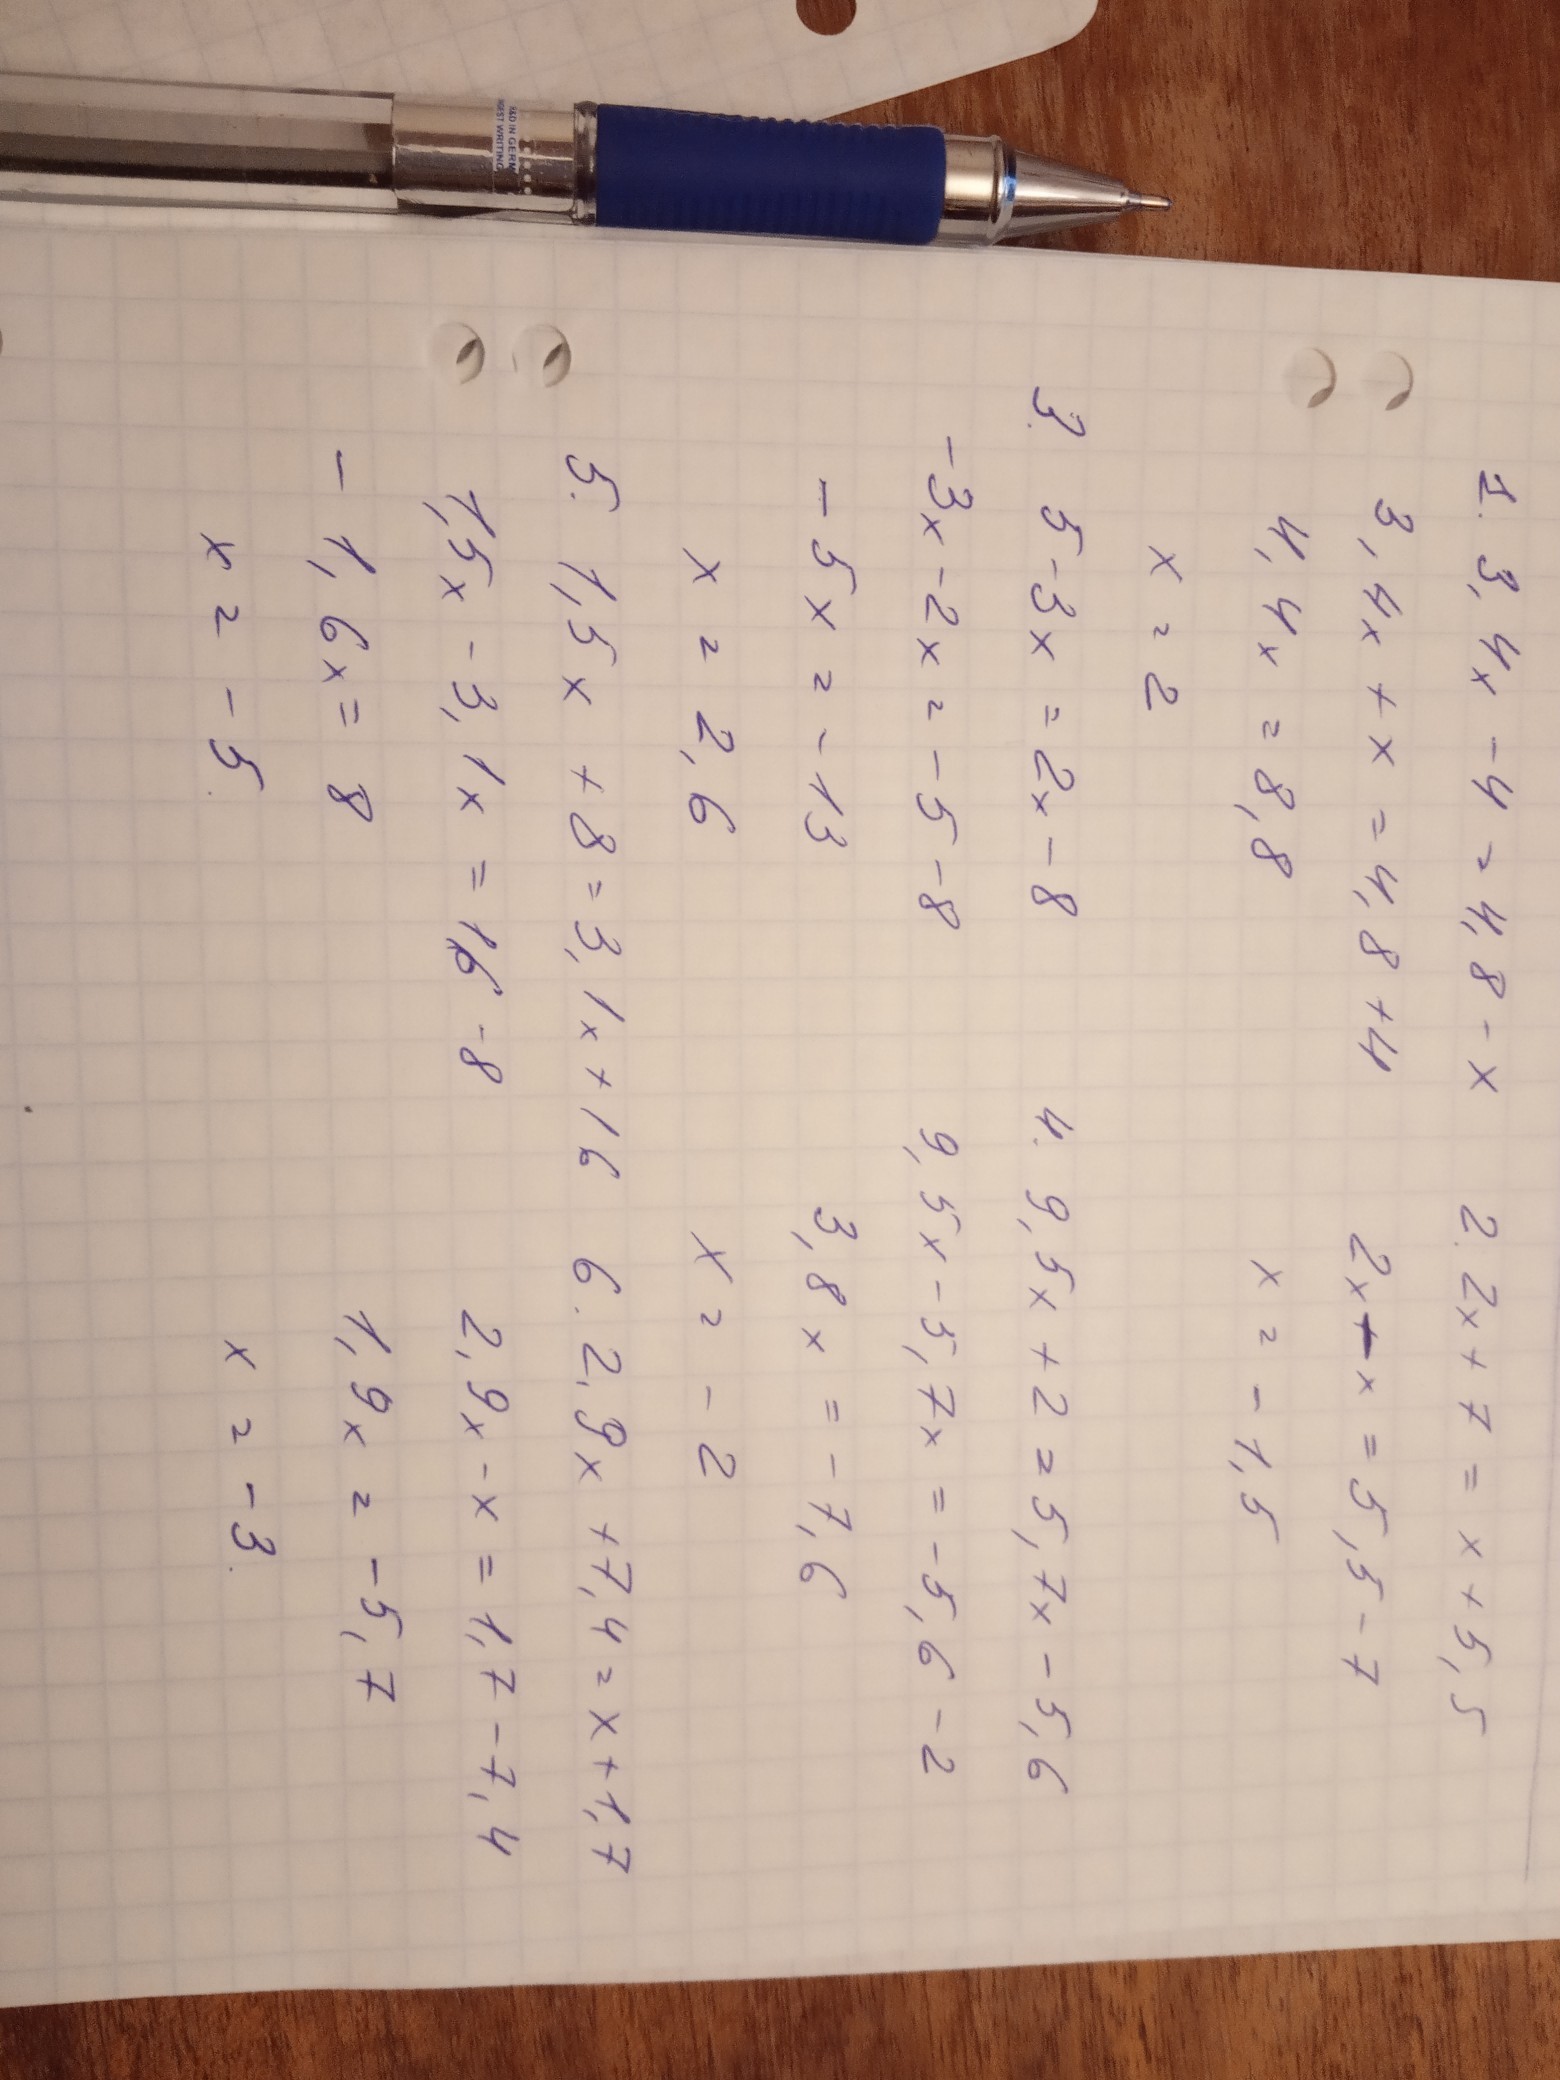 1. 3,4x - 4 = 4,8 - x
3,4x + x = 4,8 + 4
4,4x = 8,8
x = 2
2. 2x + 7 = x + 5,5
2x - x = 5,5 - 7
x = - 1,5
3. 5 - 3x = 2x - 8
-3x - 2x = - 5 - 8
- 5x = - 13
x = 2,6
4. 9,5x + 2 = 5,7x - 5,6
9,5x - 5,7x = - 5,6 - 2
3,8x = - 7,6
x = - 2
5. 1,5x + 8 = 3,1x + 16
1,5x - 3,1x = 16 - 8
- 1,6x = 8
x = - 5.
6. 2,9x + 7,4 = x + 1,7
2,9x - x = 1,7 - 7,4
1,9x = - 5,7
x = - 3.